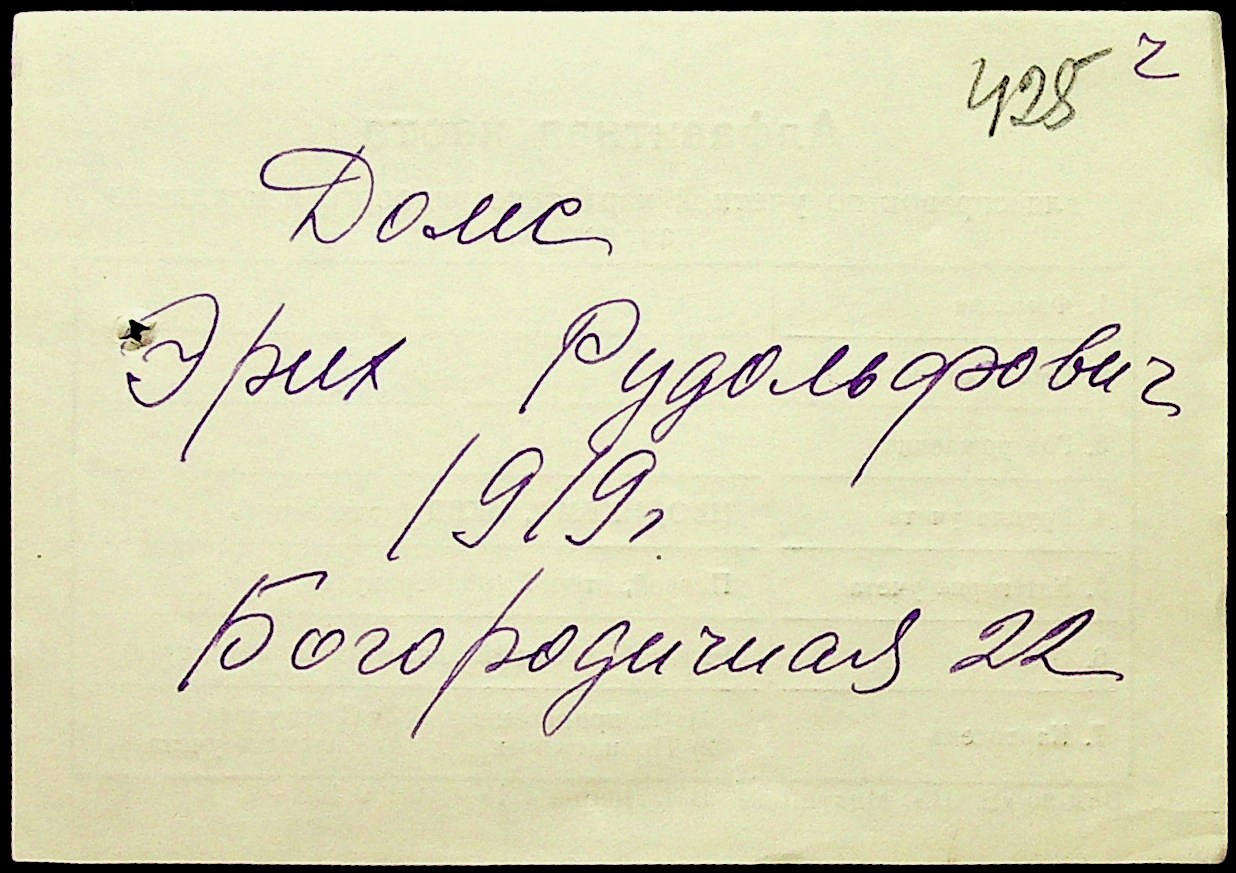 428 ч
Домс
Эрих Рудольфович
1919г
Богородичная 22